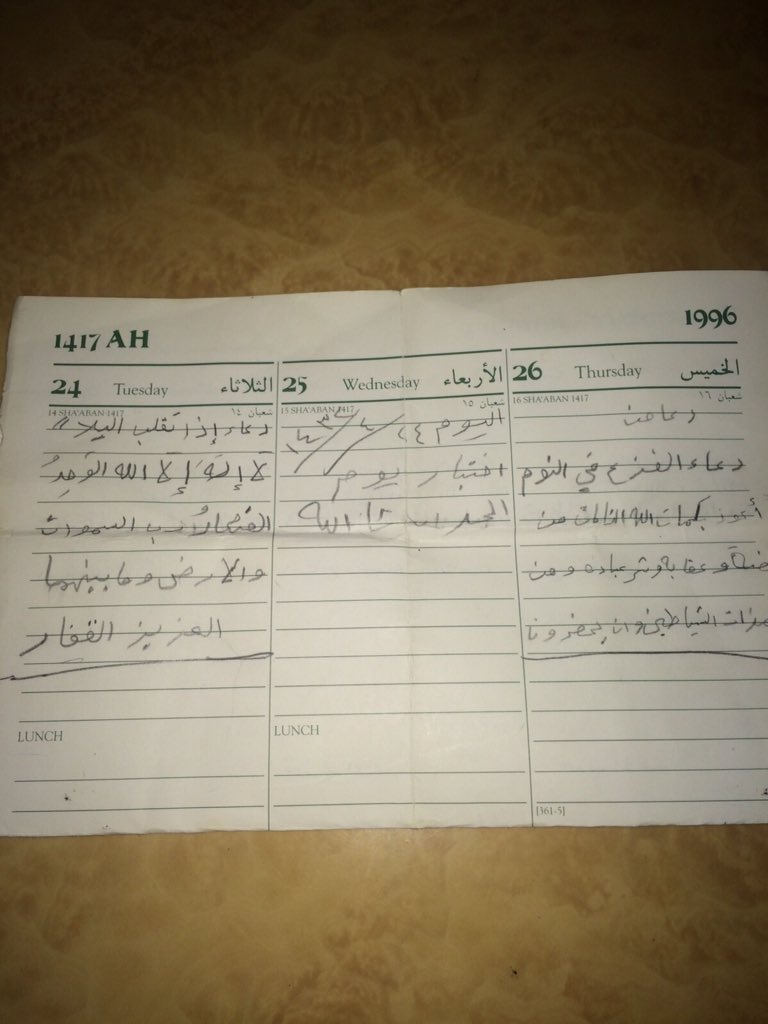 1417 AH
1996
24 Tuesday الثلاثاء
14 SHA'ABAN 1417 شعبان ١٤
دعاء إذا تقلب اليلاً
لَا إِلَهَ إِلَّا الله الوَحِدُ
القهارُ رب السموات
والارض وما بينهما
العزيز الغفار
LUNCH
25 Wednesday الأربعاء
15 SHA'ABAN 1417 شعبان ١٥
اليوم ٢٤
اختبار يوم
الله
LUNCH
26 Thursday الخميس
16 SHA'ABAN 1417 شعبان ١٦
دعاء الفزع في النوم
أعوذ بكلمات الله التامات من
وعقابه وشر عباده ومن
الشياطين وان يحضرونا
[361-5]